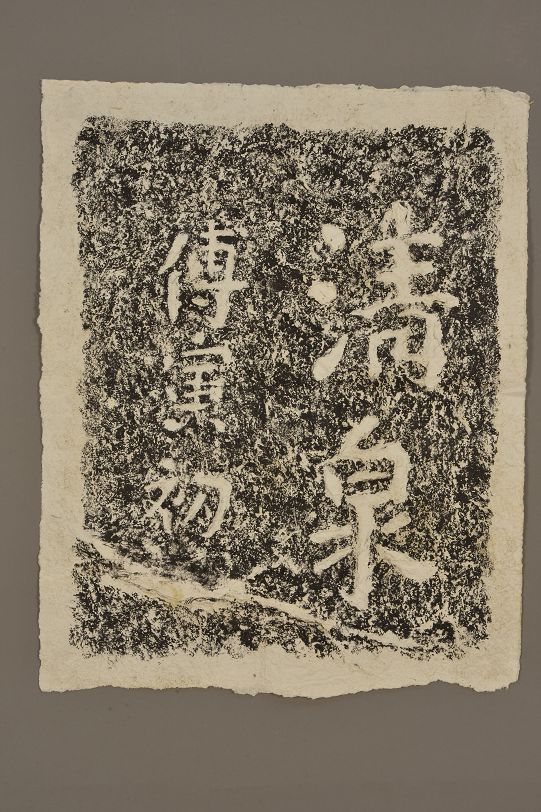 清泉
傅寅初